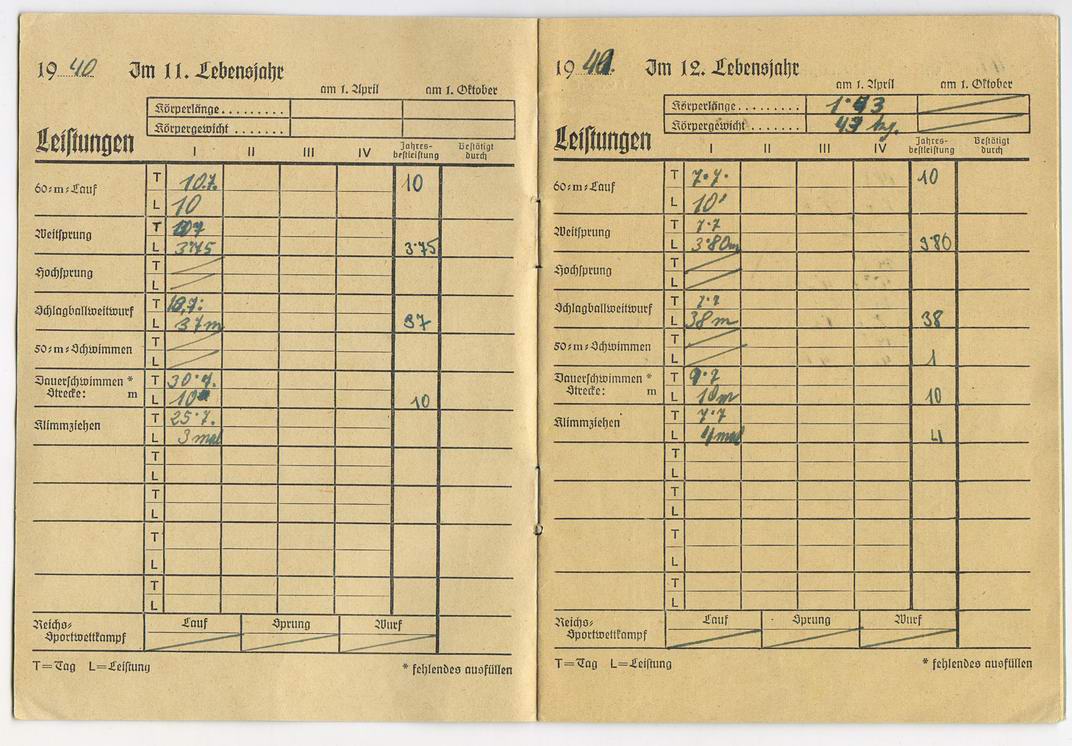 19 40 Im 11. Lebensjahr
am 1. April am 1. Oktober
Körperlänge
Körpergewicht
Leistungen
I II III IV Jahres-bestleistung Bestätigt durch
60=m=Lauf T 10.7. 10
L 10
Weitsprung T 10.7
L 3.75 3.75
Hochsprung T
L
Schlagballweitwurf T 10.7.
L 37m 37
50=m=Schwimmen T
L
Dauerschwimmen * T 30.7.
Strecke: m L 10 10
Klimmziehen T 25.7.
L 3 mal
T
L
T
L
T
L
T
L
Reichs=Sportwettkampf Lauf Sprung Wurf
T=Tag L=Leistung * fehlendes ausfüllen
19 41. Im 12. Lebensjahr
am 1. April am 1. Oktober
Körperlänge 1.43
Körpergewicht kg.
Leistungen
I II III IV Jahres-bestleistung Bestätigt durch
60=m=Lauf T 7.7. 10
L 10
Weitsprung T 7.7
L 3.80m 3.80
Hochsprung T
L
Schlagballweitwurf T 7.7
L 38 m 38
50=m=Schwimmen T
L 1
Dauerschwimmen * T 9.7
Strecke: m L 10m 10
Klimmziehen T 7.7
L 4mal 4
T
L
T
L
T
L
T
L
Reichs=Sportwettkampf Lauf Sprung Wurf
T=Tag L=Leistung * fehlendes ausfüllen